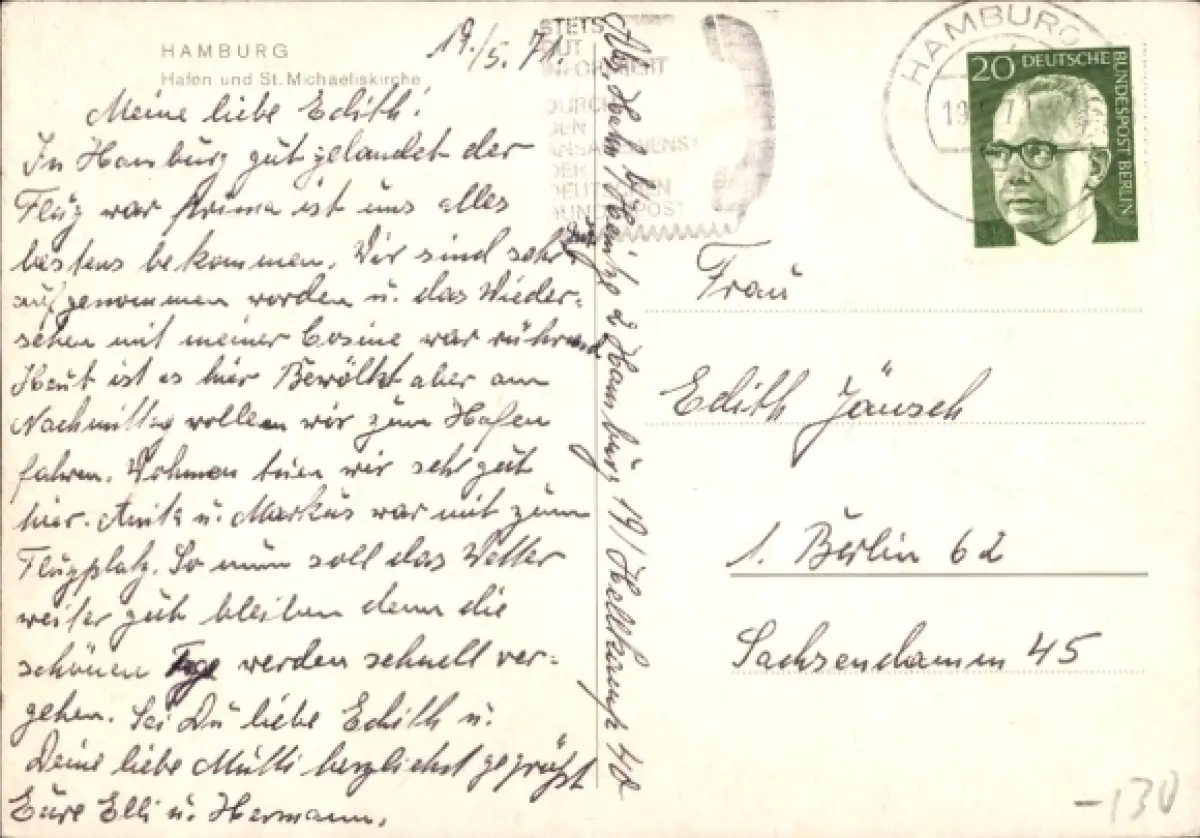 HAMBURG
Hafen und St. Michaeliskirche
19./5. 71.
Meine liebe Edith!
In Hamburg gut gelandet der
Flug war prima ist uns alles
bestens bekommen. Wir sind sehr gut
aufgenommen worden u. das Wieder-
sehen mit meiner Cosine war rührend
Heut ist es hier Bewölkt aber am
Nachmittag wollen wir zum Hafen
fahren. Wohnen tuen wir sehr gut
hier. Anita u. Markus war mit zum
Flugplatz. So nun soll das Wetter
weiter gut bleiben denn die
schönen Tage werden schnell ver-
gehen. Sei Du liebe Edith u.
Deine liebe Mutti herzlichst gegrüßt
Eure Elli u. Hermann.
Abs. Hahn b/Heinitz 2 Hamburg 19/ Hellkamp 48
STETS
GUT
INFORMIERT
DURCH
DEN
ANSAGEDIENST
DER
DEUTSCHEN
BUNDESPOST
HAMBURG
19
20 DEUTSCHE
BUNDESPOST BERLIN
Frau
Edith Jänsch
1. Berlin 62
Sachsendamm 45
-130